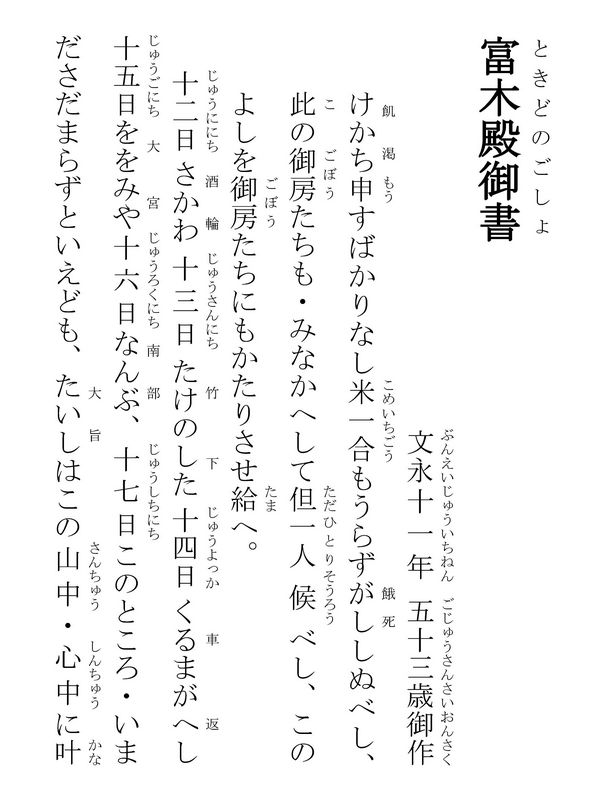 ときどのごしょ
富木殿御書
ぶんえいじゅういちねん ごじゅうさんさいおんさく
文永十一年 五十三歳御作
飢渇 もう こめいちごう 餓死
けかち申すばかりなし米一合もうらずがししぬべし、
こ ごぼう ただひとりそうろう
此の御房たちも・みなかへして但一人候べし、この
ごぼう たま
よしを御房たちにもかたりさせ給へ。
じゅうににち 酒輪 じゅうさんにち 竹下 じゅうよっか 車返
十二日さかわ 十三日たけのした 十四日くるまがへし
じゅうごにち 大宮 じゅうろくにち 南部 じゅうしちにち
十五日ををみや十六日なんぶ、十七日このところ・いま
大旨 さんちゅう しんちゅう かな
ださだまらずといえども、たいしはこの山中・心中に叶